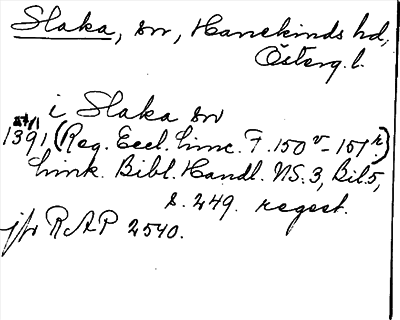 Slaka, sn, Hanekinds hd,
Österg. l.
i Slaka sn
27/1
1391 (Reg. Eccl. Linc. F. 150v - 151r.)
Link. Bibl. Handl. NS. 3, Bil. 5,
s. 249. regest.
jfr RAP 2540.